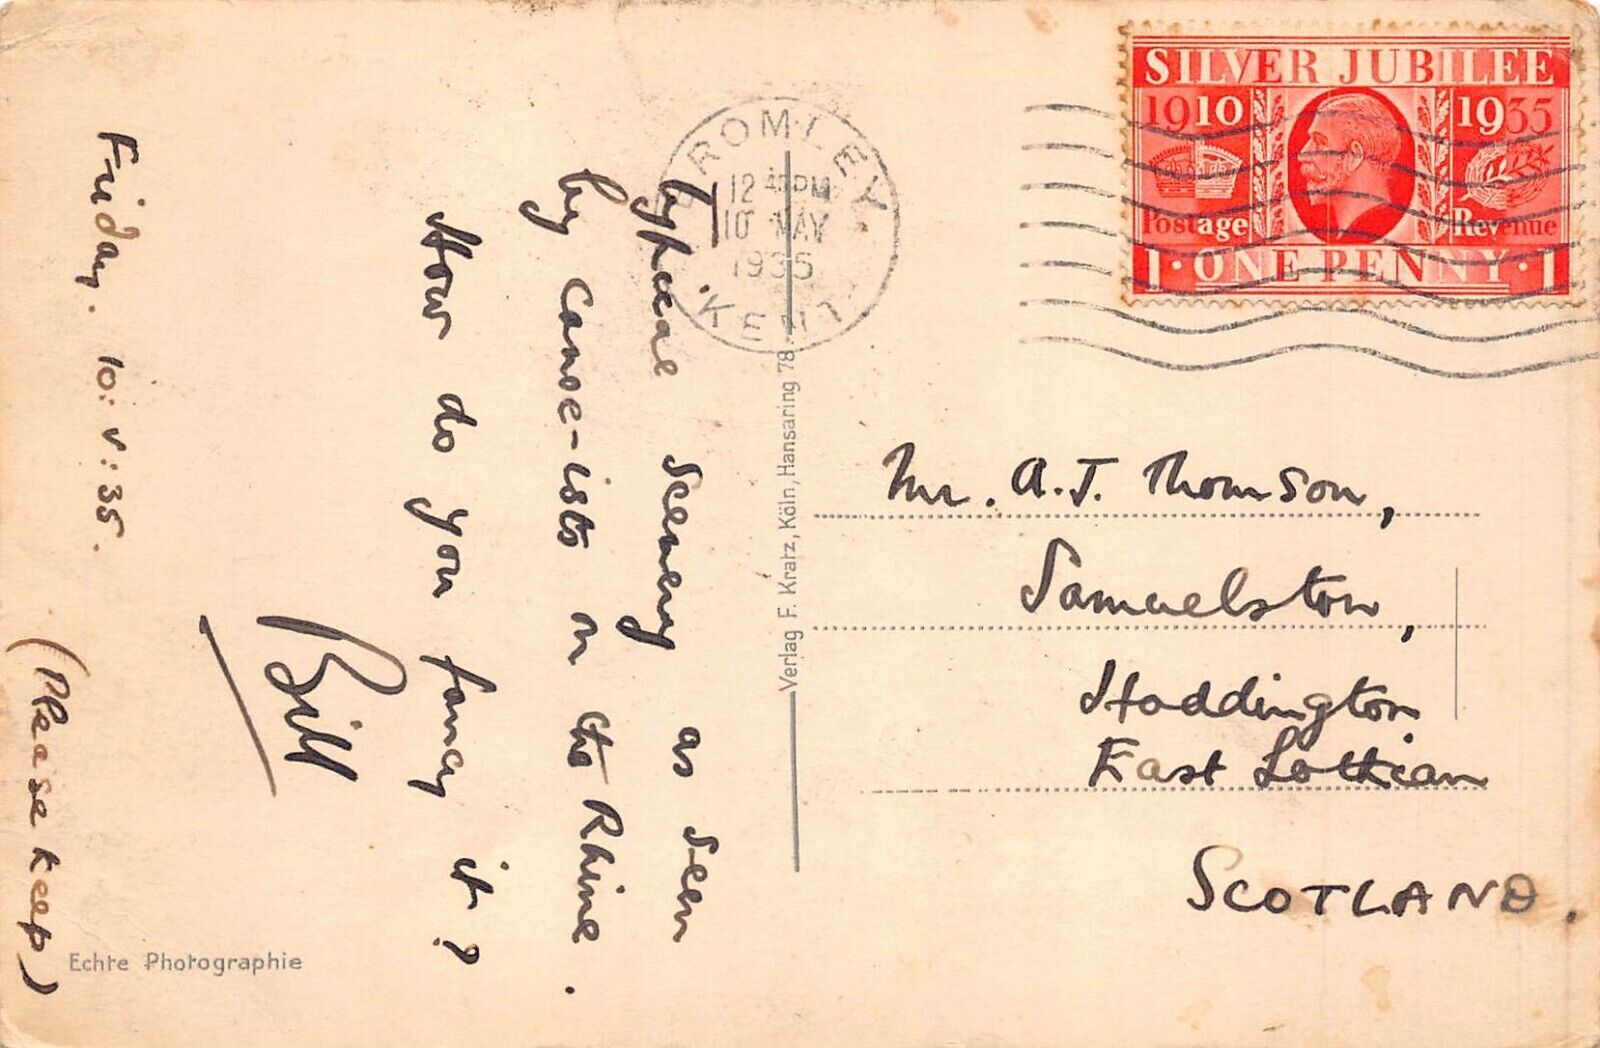 SILVER JUBILEE
1910 1935
Postage Revenue
1 · ONE PENNY · 1
BROMLEY
12 45 PM
10 MAY
1935
KENT
Friday. 10: V: 35.
Typical scenery as seen
by canoe-ists on the Rhine.
How do you fancy it?
Bill
(Please keep)
Echte Photographie
Verlag F. Kratz, Köln, Hansaring 78
Mr. A.J. Thomson,
Samuelston,
Haddington
East Lothian
SCOTLAND.